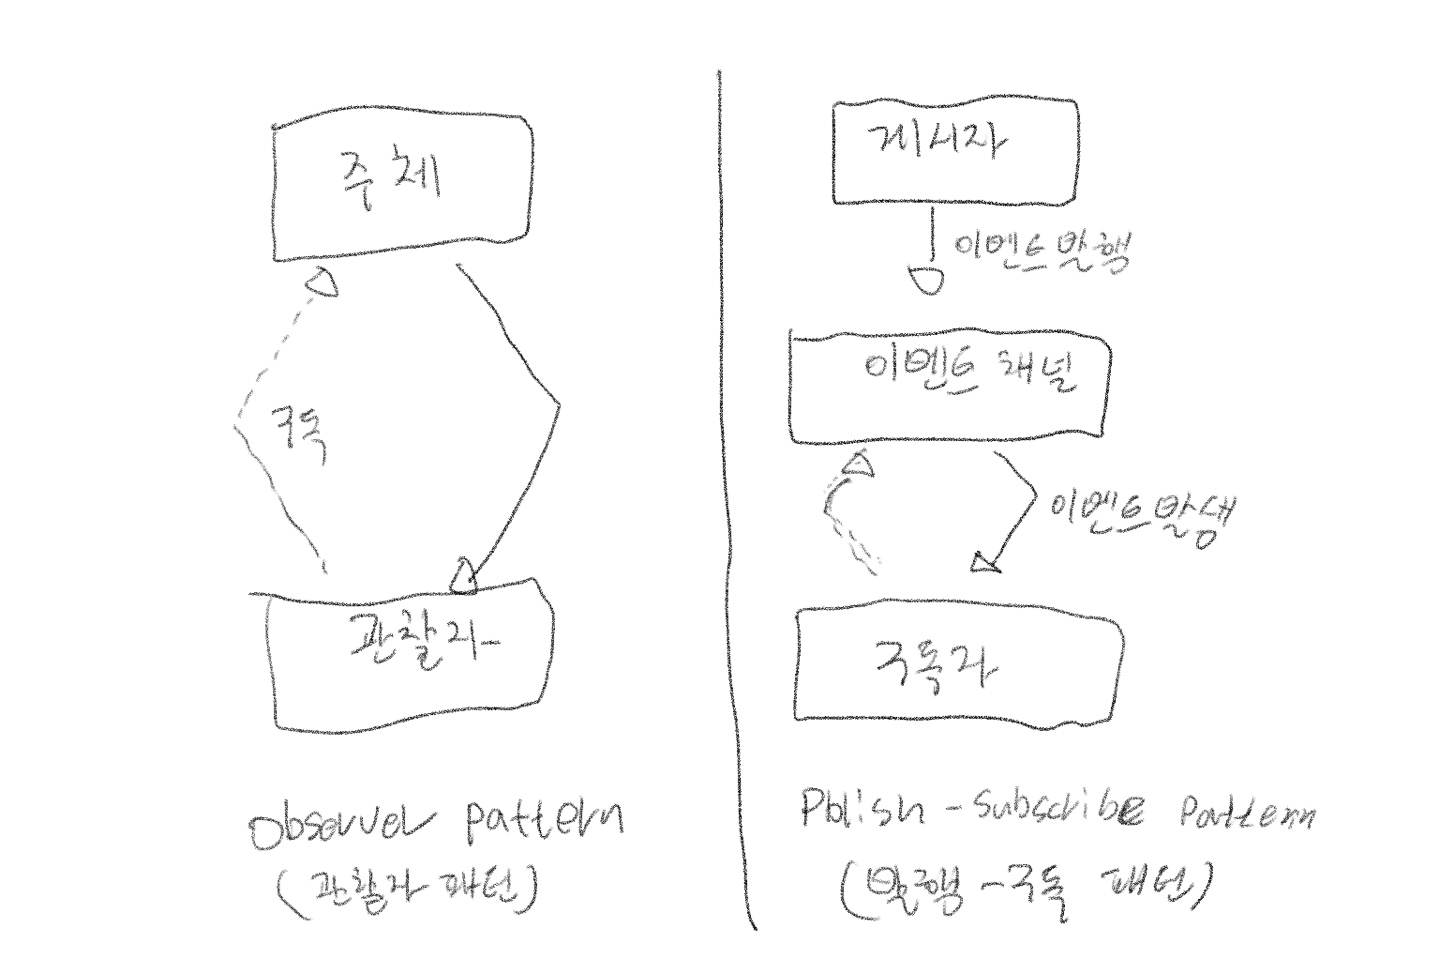 주체
구독
관찰자
Observer pattern
(관찰자 패턴)
게시자
이벤트발행
이벤트 채널
이벤트발생
구독자
Pblish - Subscribe Pattern
(발행 - 구독 패턴)